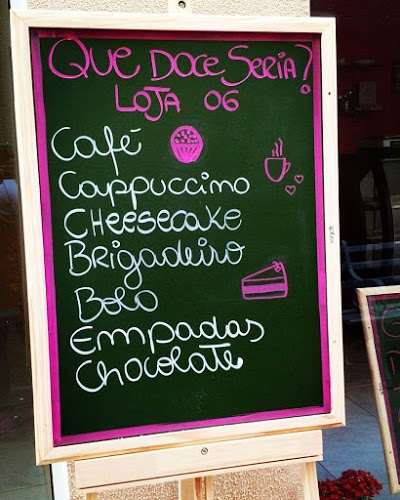 Que Doce Seria?
Loja 06
Café
Cappuccino
Cheesecake
Brigadeiro
Bolo
Empadas
Chocolate